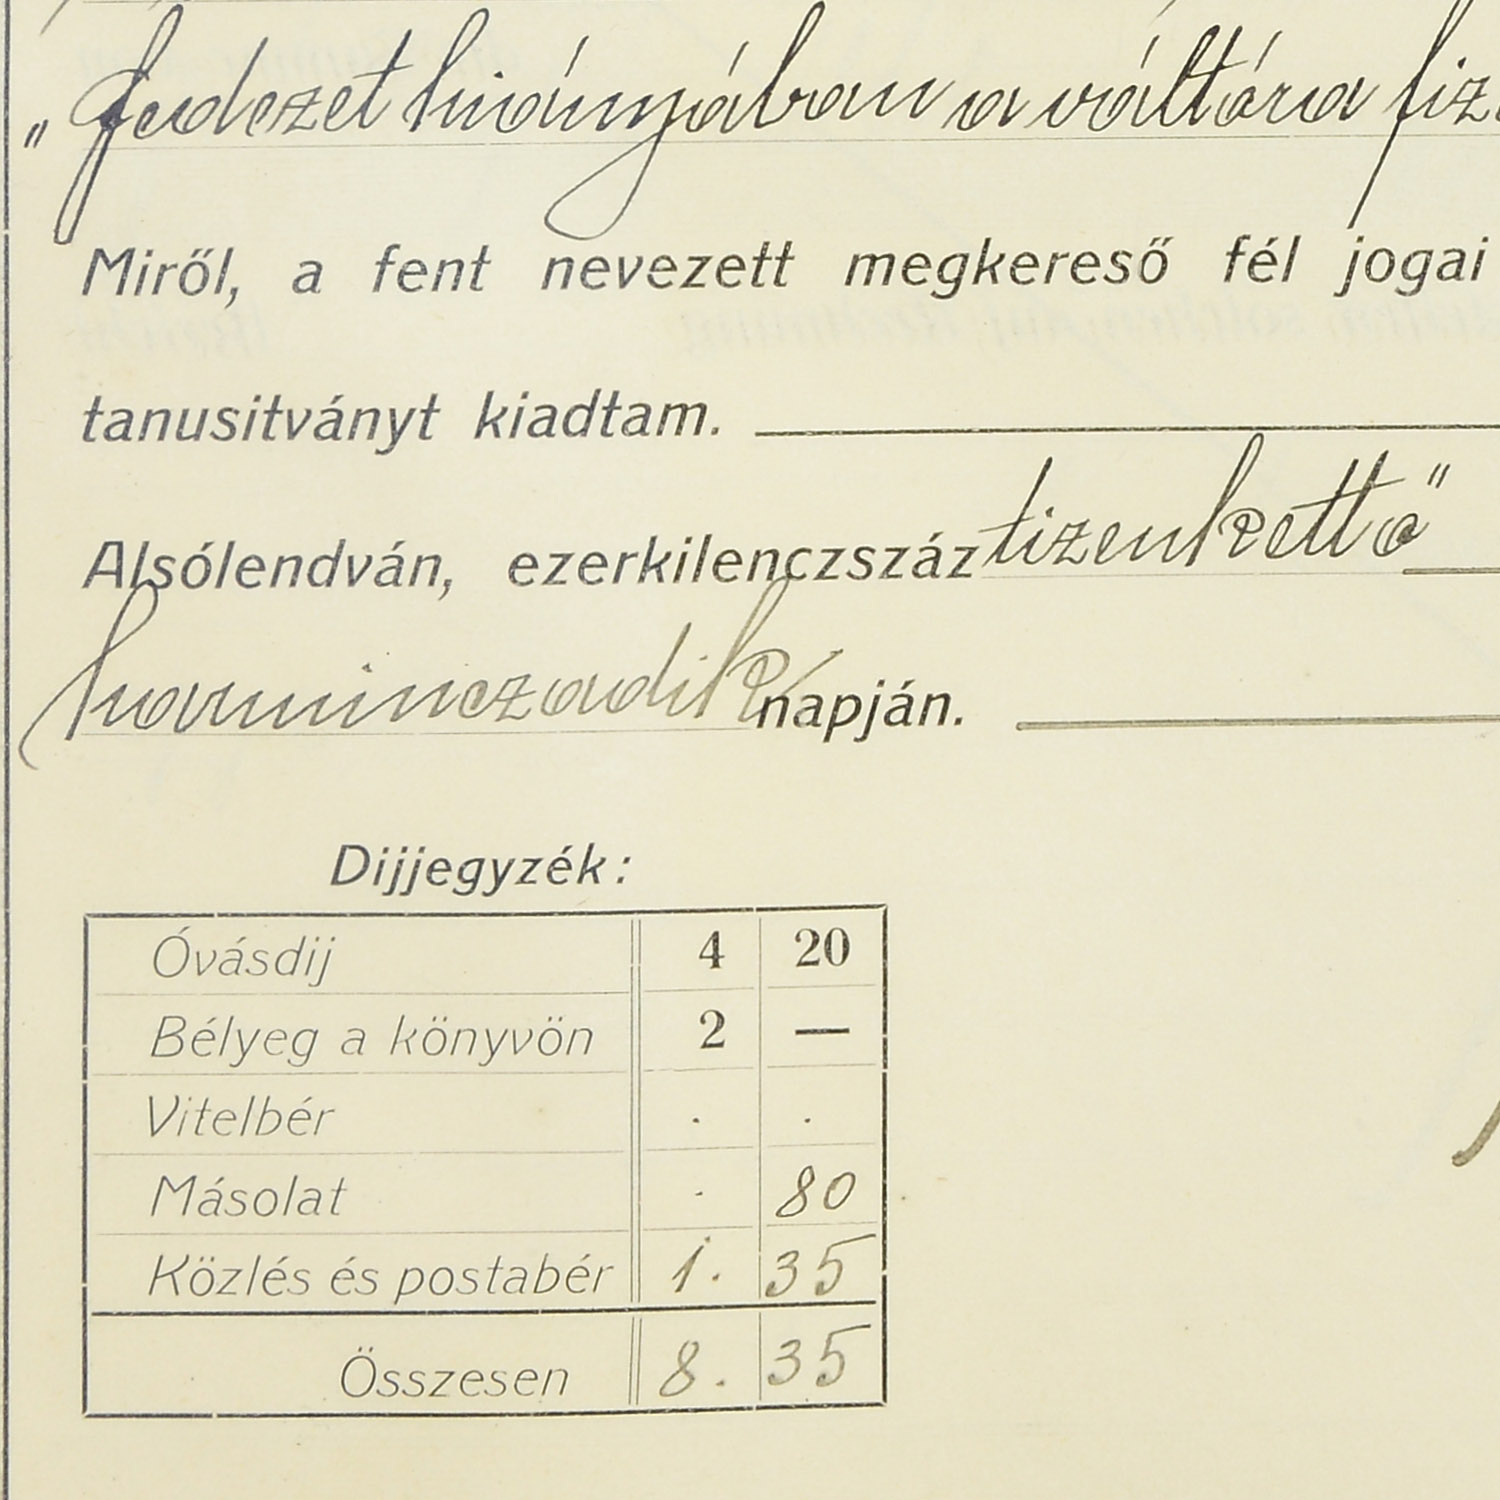 „Fedezet hiányában a váltóra fiz
Miről, a fent nevezett megkereső fél jogai
tanusitványt kiadtam.
Alsólendván, ezerkilenczszáz tizenkettő"
harminczadik napján.
Dijjegyzék:
Óvásdij 4 20
Bélyeg a könyvön 2 —
Vitelbér . .
Másolat . 80
Közlés és postabér 1. 35
Összesen 8. 35